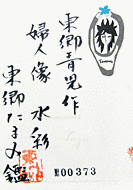 東郷青児作
婦人像 水彩
東郷たまみ鑑
№00373